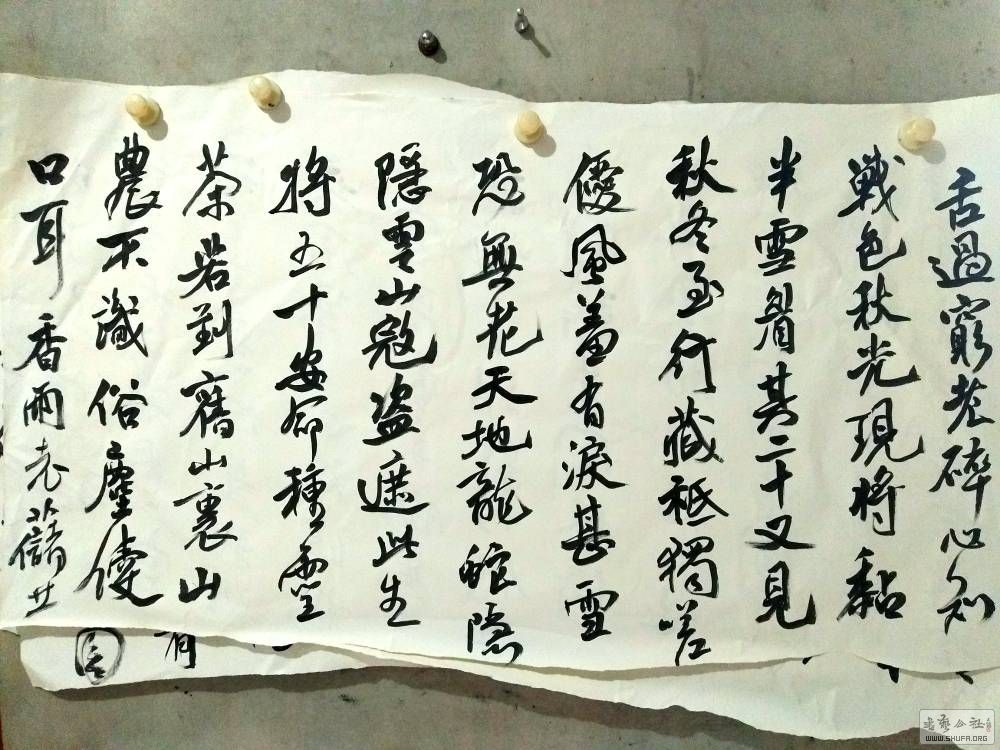 舌過窮老碎心知
戰色秋光現將黏
半雪眉其二十又見
秋冬至行藏祗獨嗟
優風蓄有淚甚雪
恐無花天地龍蛇隱
隱雲山寇盜遮此生
將五十安命種靈
茶若到舊山裏山
農不識俗塵使
口耳香雨老
有
書藝公社
WWW.SHUFA.ORG